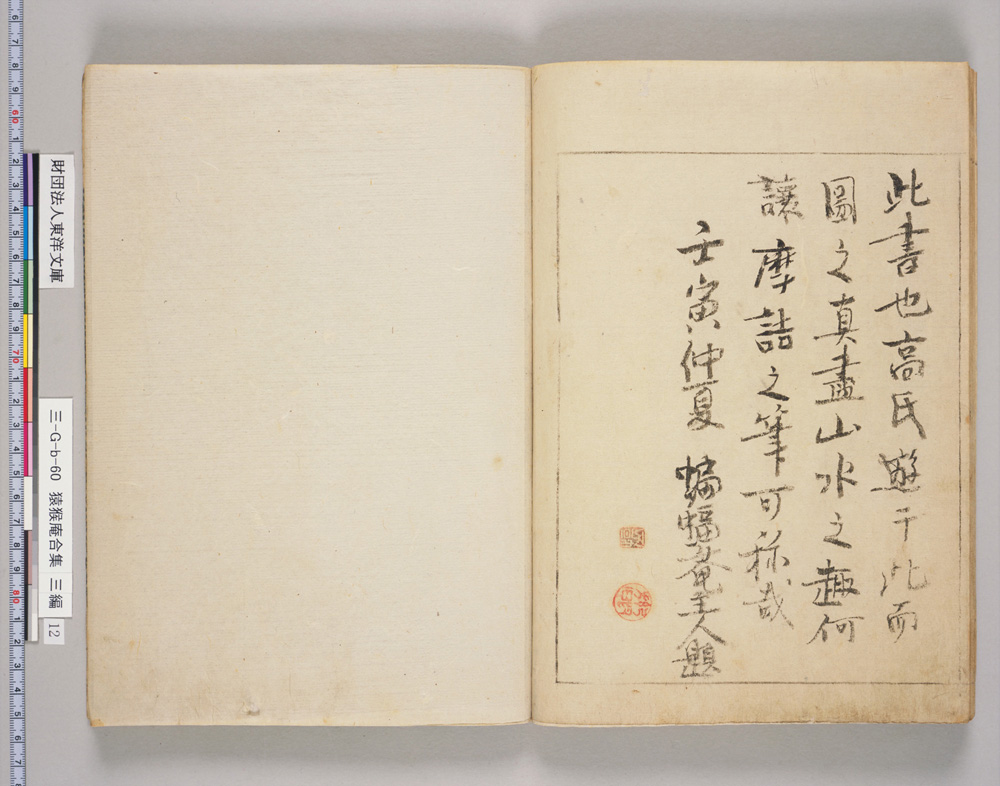 此書也高氏遊于此而
圖之真盡山水之趣何
讓摩詰之筆可称哉
壬寅仲夏　蝙蝠菴主人題
財団法人東洋文庫
三-G-b-60 猿猴庵合集 三編
12